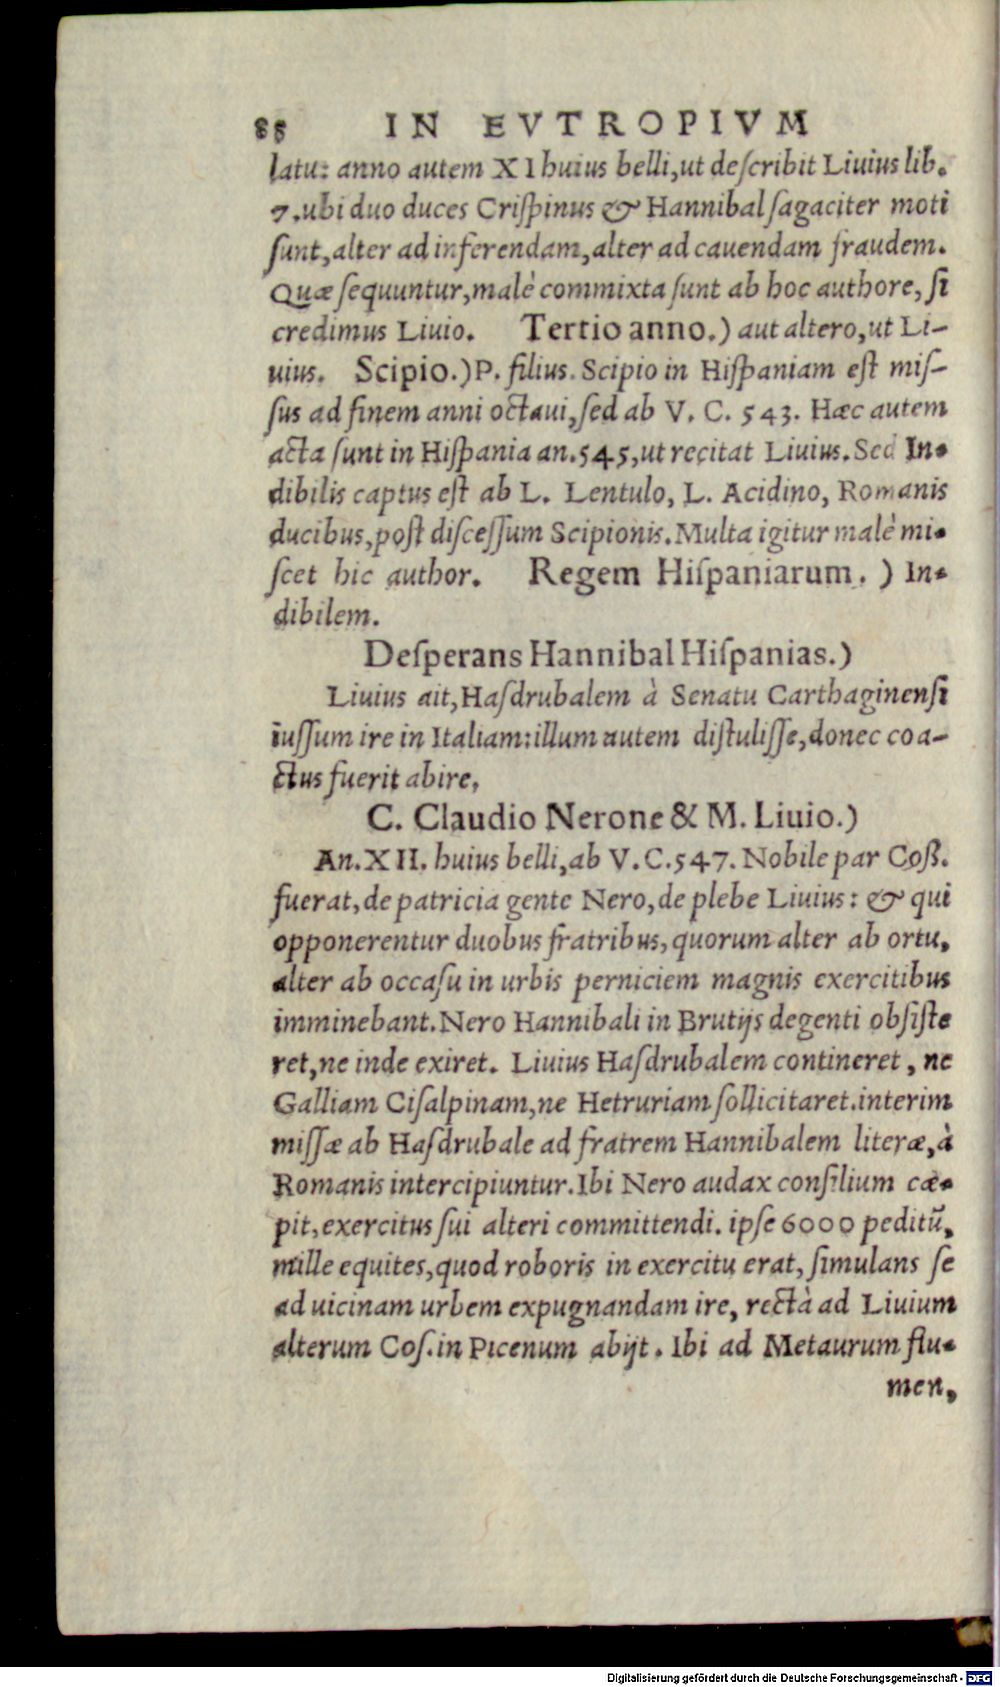 88 IN EVTROPIVM
latu: anno autem XI huius belli,ut deſcribit Liuius lib.
7.ubi duo duces Criſpinus & Hannibal ſagaciter moti
ſunt,alter ad inferendam,alter ad cauendam fraudem.
Quæ ſequuntur,malè commixta ſunt ab hoc authore, ſi
credimus Liuio. Tertio anno.) aut altero,ut Li-
uius. Scipio.) P. filius. Scipio in Hiſpaniam eſt miſ-
ſus ad finem anni octaui,ſed ab V. C. 543. Hæc autem
acta ſunt in Hiſpania an.545,ut recitat Liuius. Sed In-
dibilis captus eſt ab L. Lentulo, L. Acidino, Romanis
ducibus,poſt diſceſſum Scipionis. Multa igitur malè mi-
ſcet hic author. Regem Hiſpaniarum. ) In-
dibilem.
Deſperans Hannibal Hiſpanias.)
Liuius ait, Haſdrubalem à Senatu Carthaginenſi
iuſſum ire in Italiam:illum autem diſtuliſſe,donec coa-
ctus fuerit abire.
C. Claudio Nerone & M. Liuio.)
An. XII. huius belli,ab V.C.547. Nobile par Coß.
fuerat,de patricia gente Nero,de plebe Liuius: & qui
opponerentur duobus fratribus,quorum alter ab ortu,
alter ab occaſu in urbis perniciem magnis exercitibus
imminebant. Nero Hannibali in Brutijs degenti obſiſte
ret,ne inde exiret. Liuius Haſdrubalem contineret, ne
Galliam Ciſalpinam,ne Hetruriam ſollicitaret.interim
miſſæ ab Haſdrubale ad fratrem Hannibalem literæ,à
Romanis intercipiuntur. Ibi Nero audax conſilium cæ-
pit,exercitus ſui alteri committendi. ipſe 6000 peditũ,
mille equites,quod roboris in exercitu erat, ſimulans ſe
ad uicinam urbem expugnandam ire, rectà ad Liuium
alterum Coſ.in Picenum abijt. Ibi ad Metaurum flu-
men,
Digitalisierung gefördert durch die Deutsche Forschungsgemeinschaft - DFG